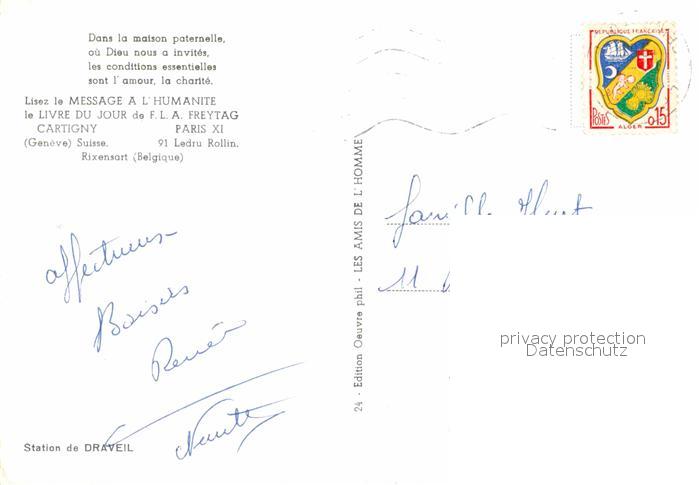 Dans la maison paternelle,
où Dieu nous a invités,
les conditions essentielles
sont l'amour, la charité.
Lisez le MESSAGE A L'HUMANITE
le LIVRE DU JOUR de F. L. A. FREYTAG
CARTIGNY PARIS XI
(Genève) Suisse. 91 Ledru Rollin.
Rixensart (Belgique)
affectueux
Baisers
Renée
Station de DRAVEIL
24 - Edition Oeuvre phil - LES AMIS DE L'HOMME
REPUBLIQUE FRANÇAISE
POSTES 0,15
ALGER
11
privacy protection
Datenschutz